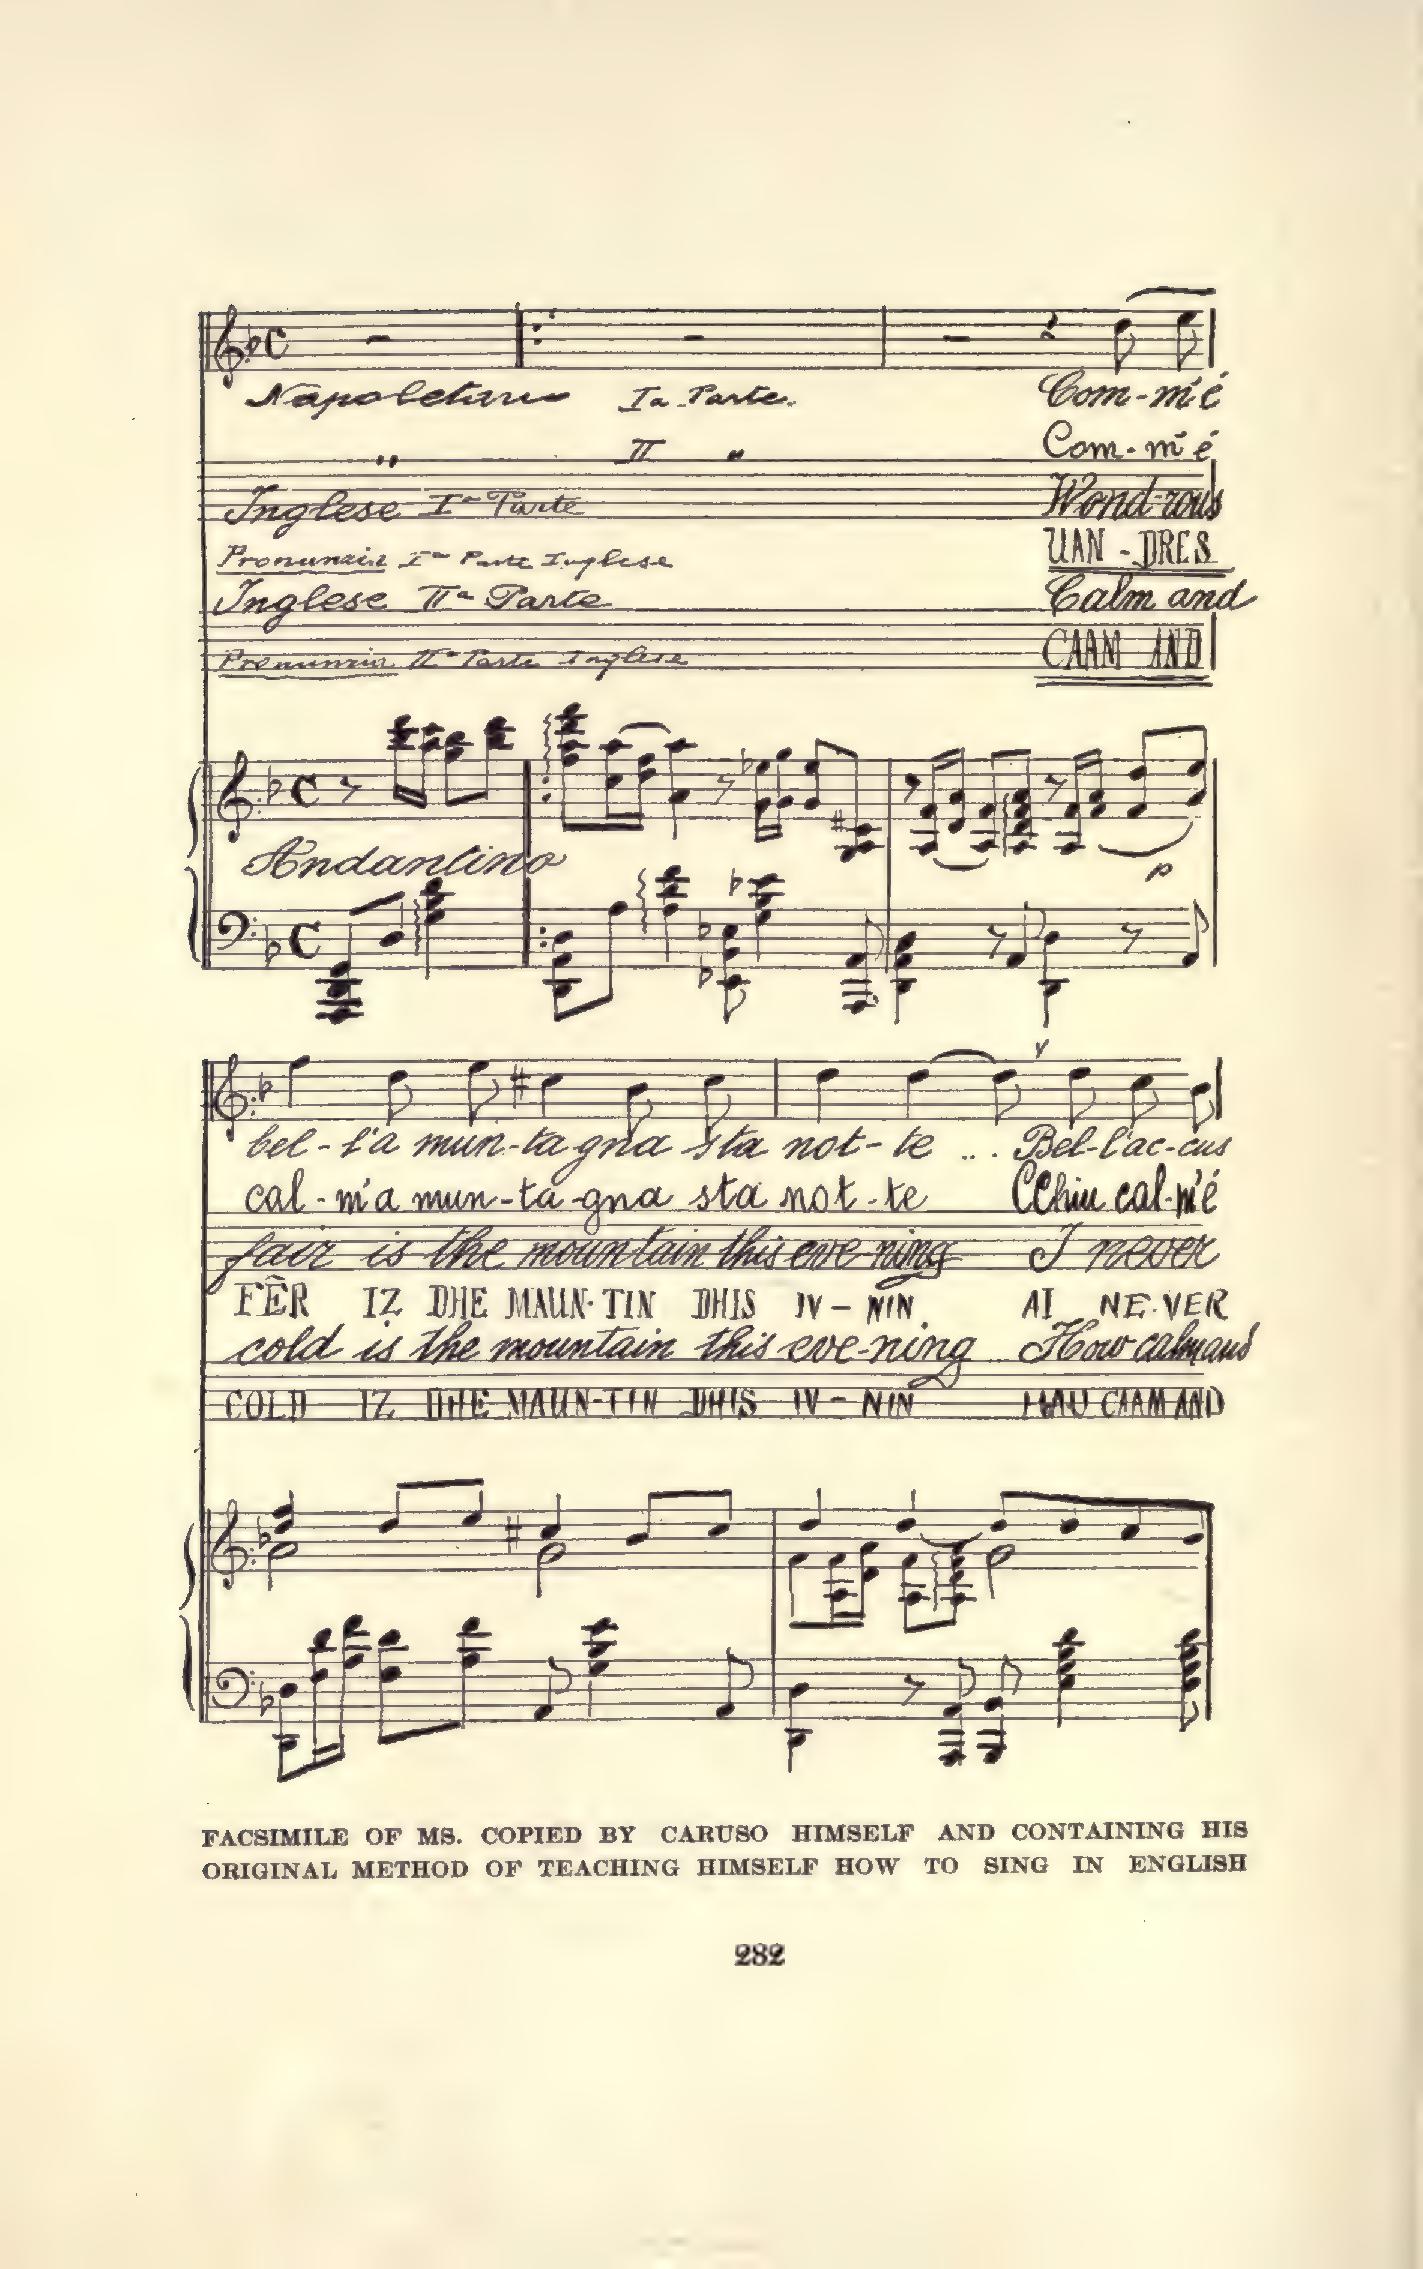 Napoletano Ia Parte. Com-m'é
" II " Com-m'é
Inglese Ia Parte Wond-rous
Pronunzia Ia Parte Inglese UAN-DRES
Inglese IIa Parte Calm and
Pronunzia IIa Parte Inglese CAAM AND
Andantino
p
bel-l'a mun-ta gna sta not-te ... Bel-l'ac-cus
cal-m'a mun-ta-gna sta not-te CChiu cal-m'é
fair is the mountain this eve-ning I never
FĒR IZ DHE MAUN-TIN DHIS IV-NIN AI NE-VER
cold is the mountain this eve-ning How calm and
COLD IZ DHE MAUN-TIN DHIS IV-NIN HAU CAAM AND
FACSIMILE OF MS. COPIED BY CARUSO HIMSELF AND CONTAINING HIS
ORIGINAL METHOD OF TEACHING HIMSELF HOW TO SING IN ENGLISH
282